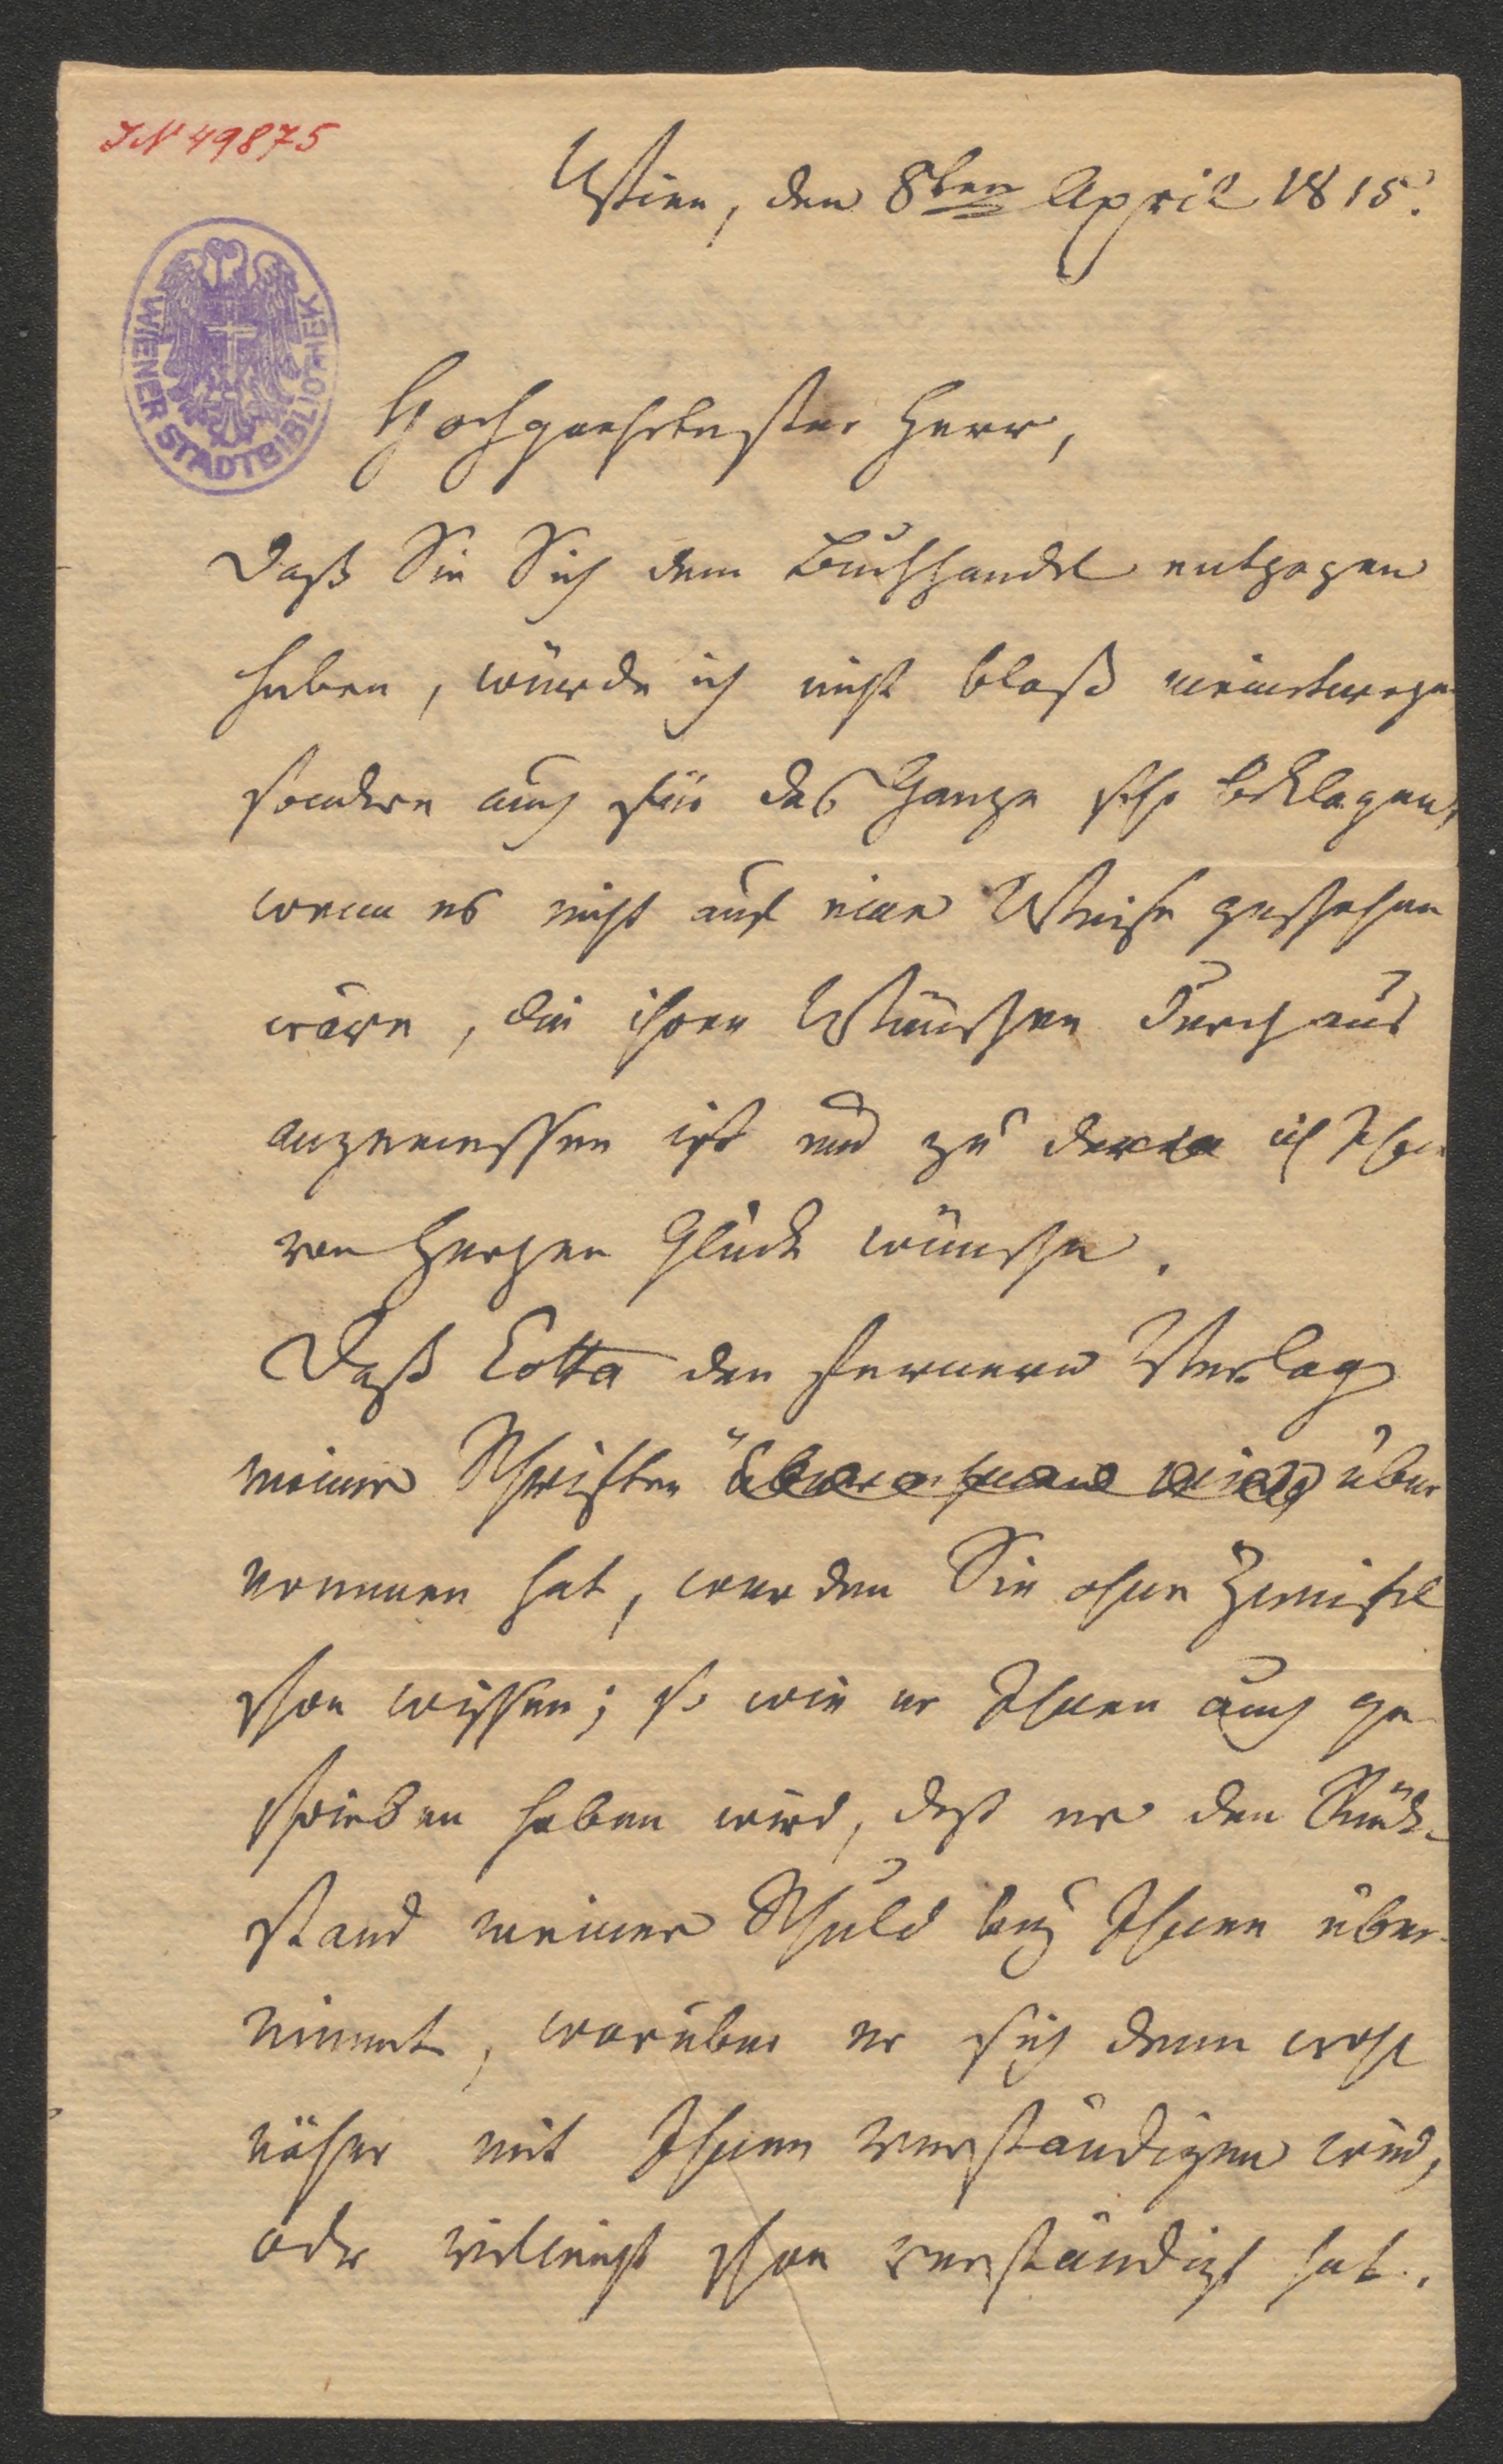 IN 49875
Wien, den 8ten April 1815.
WIENER STADTBIBLIOTHEK
Hochgeehrtester Herr,
Daß Sie Sich dem Buchhandel entzogen
haben, würde ich nicht bloß meinetwegen
sondern auch für das Ganze sehr beklagen,
wenn es nicht auf eine Weise geschehen
wäre, die ihren Wünschen durchaus
angemessen ist und zu der ich Ihnen
von Herzen Glück wünsche.
Daß Cotta den fernern Verlag
meiner Schriften über
nommen hat, werden Sie ohne Zweifel
schon wissen; so wie er Ihnen auch ge
schrieben haben wird, daß er den Rück-
stand meiner Schuld bey Ihnen über-
nimmt, worüber er sich denn wohl
näher mit Ihnen verständigen wird,
oder vielleicht schon verständigt hat.